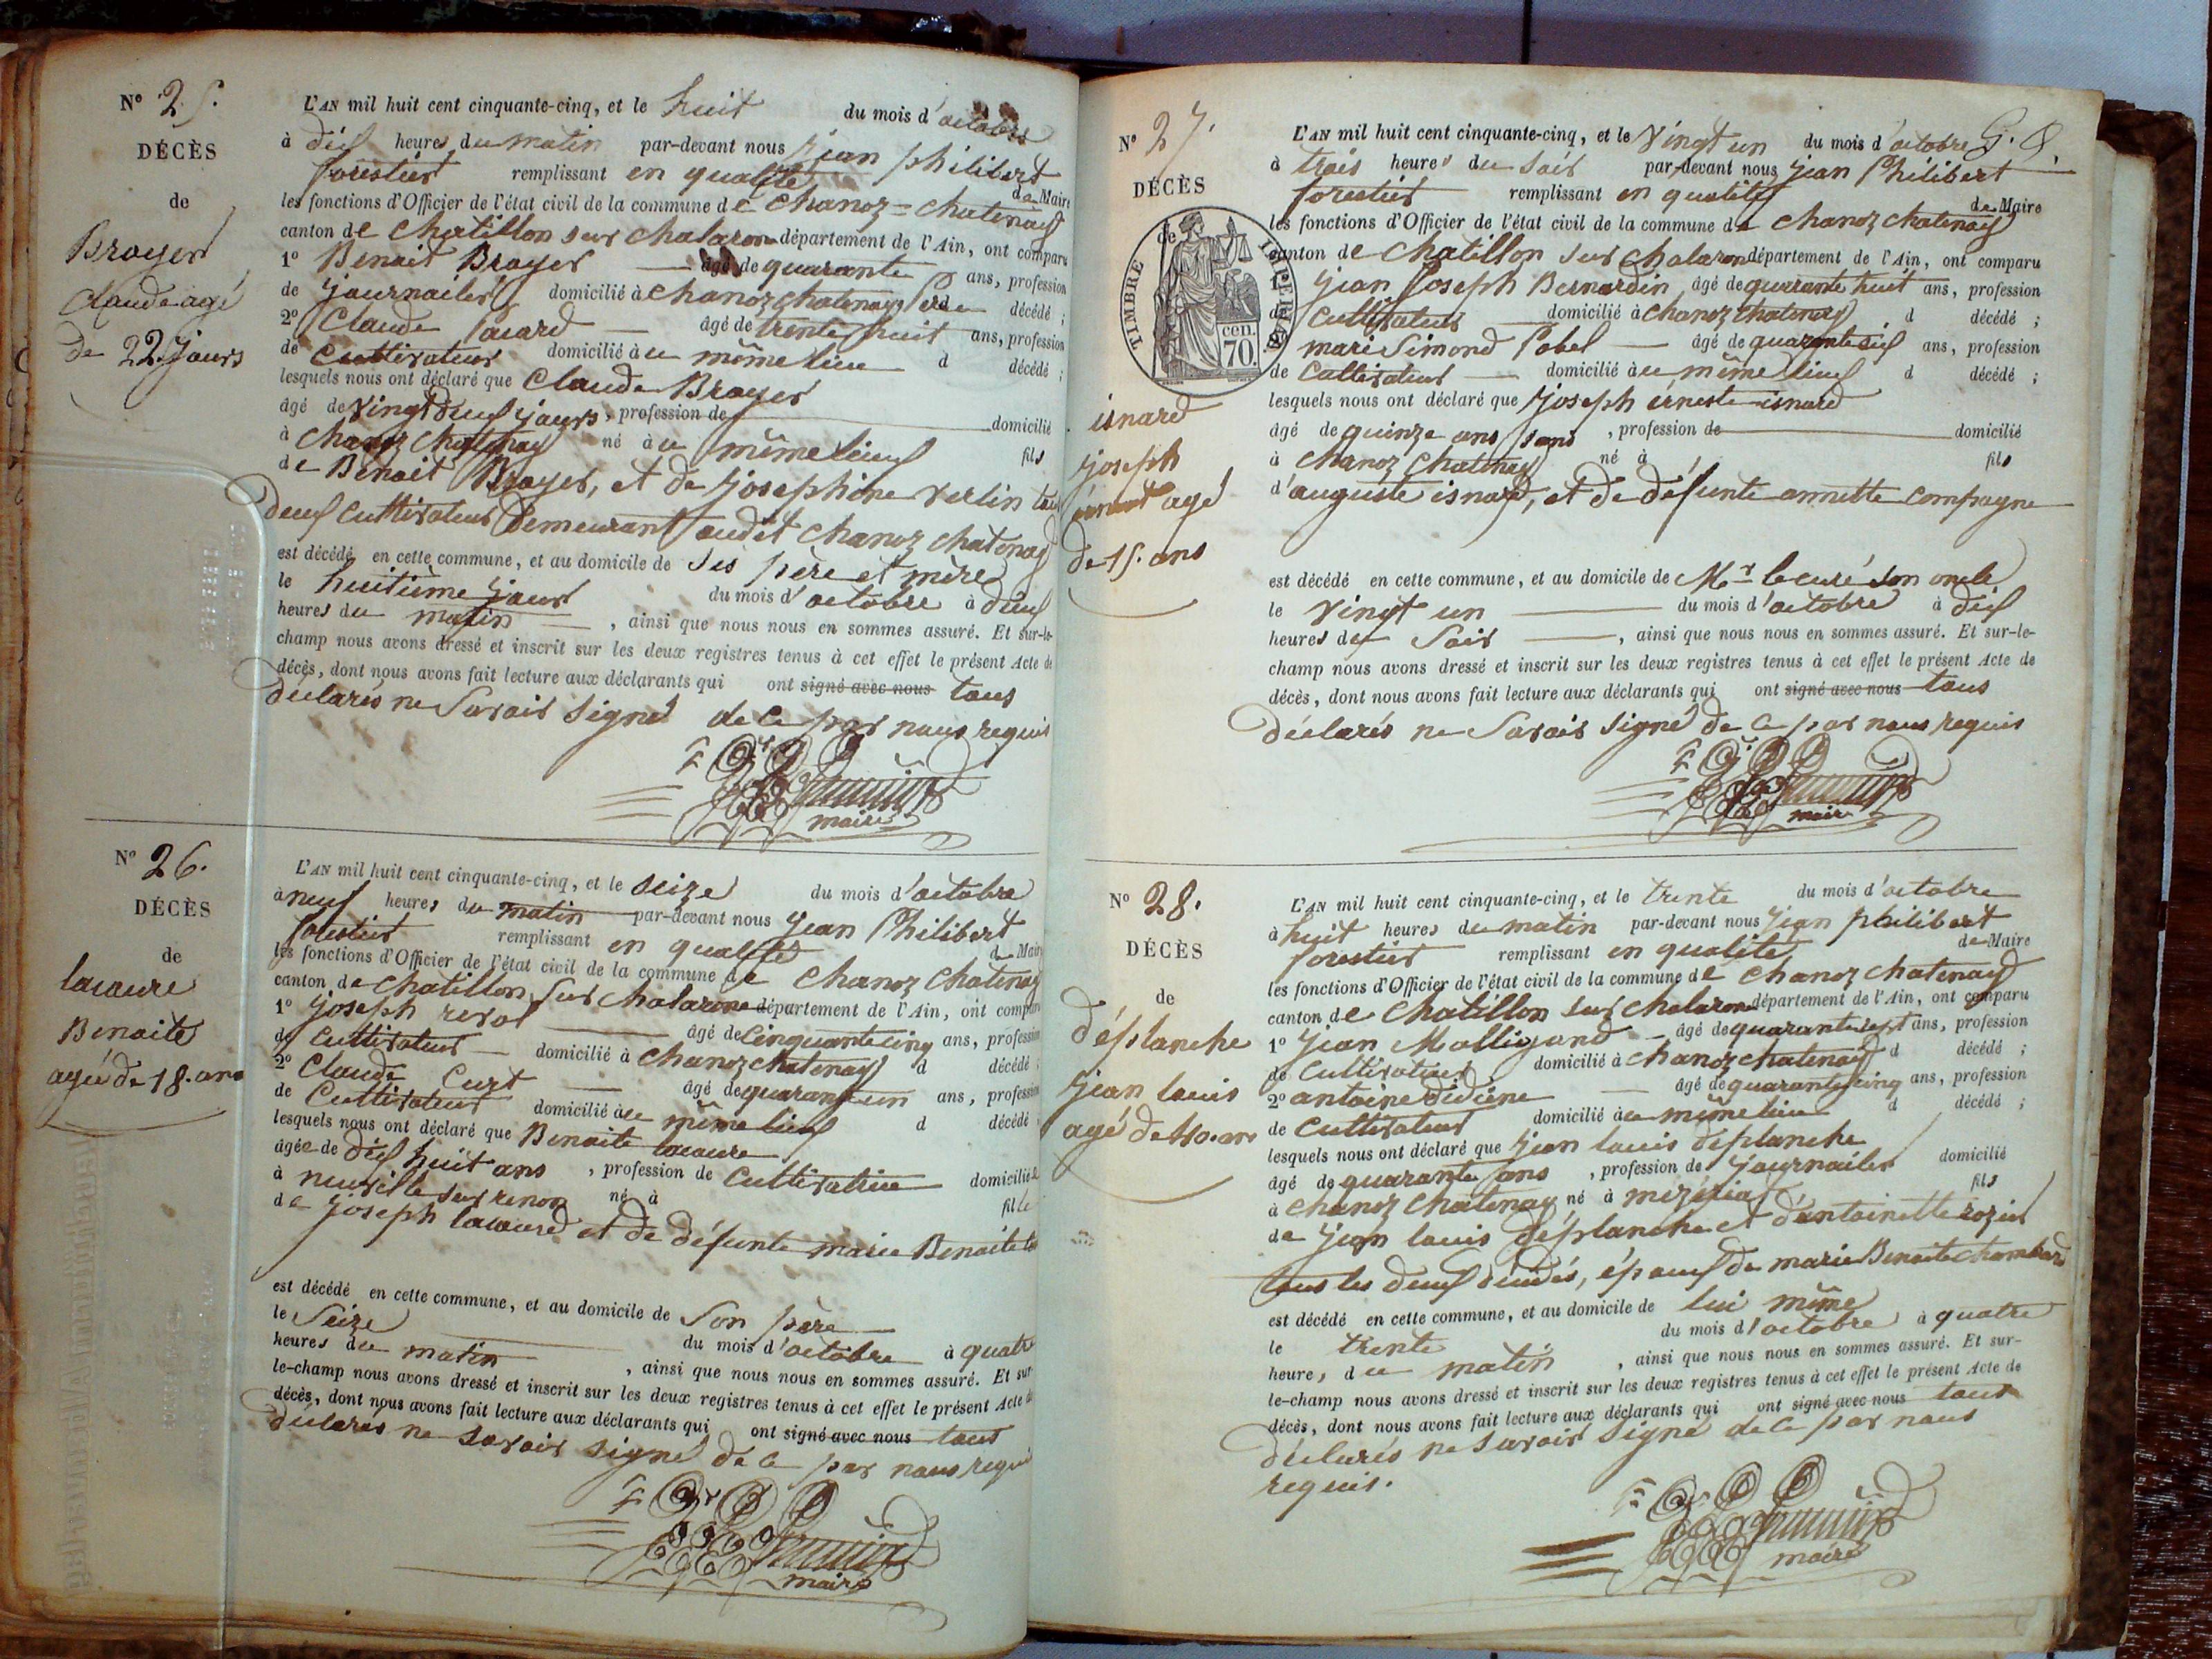 N° 25.
DÉCÈS
de
Broyer
Claude agé
de 22 jours
L'AN mil huit cent cinquante-cinq, et le huit du mois d'octobre
à dix heures du matin par-devant nous jean philibert
forestier remplissant en qualité de Maire
les fonctions d'Officier de l'état civil de la commune de Chanoz=Chatenay
canton de Chatillon sur Chalaronne département de l'Ain, ont comparu
1° Benoit Broyer agé de quarante ans, profession
de journalier domicilié à Chanoz chatenay Père décédé ;
2° Claude âgé de trente huit ans, profession
de Cultivateur domicilié à u même lieu d décédé ;
lesquels nous ont déclaré que Claude Broyer
âgé de vingt deux jours, profession de domicilié
à Chanoz Chatenay né à u même lieu fils
de Benoit Broyer, et de josephine verlin tous
deux Cultivateurs Demeurant audit Chanoz Chatenay
est décédé en cette commune, et au domicile de Ses père et mère
le huitième jour du mois d'octobre à deux
heures du matin, ainsi que nous nous en sommes assuré. Et sur-le-
champ nous avons dressé et inscrit sur les deux registres tenus à cet effet le présent Acte de
décès, dont nous avons fait lecture aux déclarants qui ont signé avec nous tous
déclarés ne Savoir Signé de Ce par nous requis
maire
N° 26.
DÉCÈS
de
lacaure
Benoite
agée de 18. ans
L'AN mil huit cent cinquante-cinq, et le Seize du mois d'octobre
à neuf heures du matin par-devant nous jean Philibert
forestier remplissant en qualité de Maire
les fonctions d'Officier de l'état civil de la commune de Chanoz Chatenay
canton de Chatillon Sur Chalaronne département de l'Ain, ont comparu
1° joseph revol âgé de Cinquante cinq ans, profession
de Cultivateur domicilié à Chanoz chatenay d décédé ;
2° Claude Curt âgé de quarante un ans, profession
de Cultivateur domicilié à u même lieu d décédé ;
lesquels nous ont déclaré que Benoite lacaure
âgée de dix huit ans, profession de Cultivatrice domiciliée
à neuville sur renon né à fille
de joseph lacaure et de défunte marie Benoite
est décédé en cette commune, et au domicile de Son père
le Seize du mois d'octobre à quatre
heures du matin, ainsi que nous nous en sommes assuré. Et sur
le-champ nous avons dressé et inscrit sur les deux registres tenus à cet effet le présent Acte de
décès, dont nous avons fait lecture aux déclarants qui ont signé avec nous tous
déclarés ne Savoir Signé de Ce par nous requis
maire
N° 27.
DÉCÈS
de
TIMBRE IMPERIAL
cen.
70.
isnard
joseph
érnest agé
de 15. ans
L'AN mil huit cent cinquante-cinq, et le Vingt un du mois d'octobre
à trois heures du Soir par-devant nous jean Philibert
forestier remplissant en qualité de Maire
les fonctions d'Officier de l'état civil de la commune de Chanoz chatenay
canton de Chatillon Sur Chalaronne département de l'Ain, ont comparu
1° jean joseph Bernardin âgé de quarante huit ans, profession
de Cultivateur domicilié à Chanoz Chatenay d décédé ;
mari Simond Pobel âgé de quarante six ans, profession
de Cultivateur domicilié à u même lieu d décédé ;
lesquels nous ont déclaré que joseph érneste isnard
âgé de quinze ans Sans, profession de domicilié
à Chanoz Chatenay né à fils
d'auguste isnard, et de défunte annette compagne
est décédé en cette commune, et au domicile de Mr le curé Son oncle
le Vingt un du mois d'octobre à dix
heures du Soir, ainsi que nous nous en sommes assuré. Et sur-le-
champ nous avons dressé et inscrit sur les deux registres tenus à cet effet le présent Acte de
décès, dont nous avons fait lecture aux déclarants qui ont signé avec nous tous
déclarés ne Savoir Signé de Ce par nous requis
maire
N° 28.
DÉCÈS
de
déplanche
jean louis
agé de 40. ans
L'AN mil huit cent cinquante-cinq, et le trente du mois d'octobre
à huit heures du matin par-devant nous jean philibert
forestier remplissant en qualité de Maire
les fonctions d'Officier de l'état civil de la commune de Chanoz chatenay
canton de Chatillon sur Chalaronne département de l'Ain, ont comparu
1° jean Mollignand âgé de quarante sept ans, profession
de Cultivateur domicilié à Chanoz chatenay d décédé ;
2° antoine didiene âgé de quarante cinq ans, profession
de Cultivateur domicilié à u même lieu d décédé ;
lesquels nous ont déclaré que jean louis déplanche
âgé de quarante ans, profession de journalier domicilié
à Chanoz Chatenay né à mezériat fils
de jean louis déplanche et d'antoinette rozier
tous les deux décédés, époux de marie Benoite Chambard
est décédé en cette commune, et au domicile de lui même
le trente du mois d'octobre à quatre
heures du matin, ainsi que nous nous en sommes assuré. Et sur-
le-champ nous avons dressé et inscrit sur les deux registres tenus à cet effet le présent Acte de
décès, dont nous avons fait lecture aux déclarants qui ont signé avec nous tous
déclarés ne Savoir Signé de Ce par nous
requis.
maire